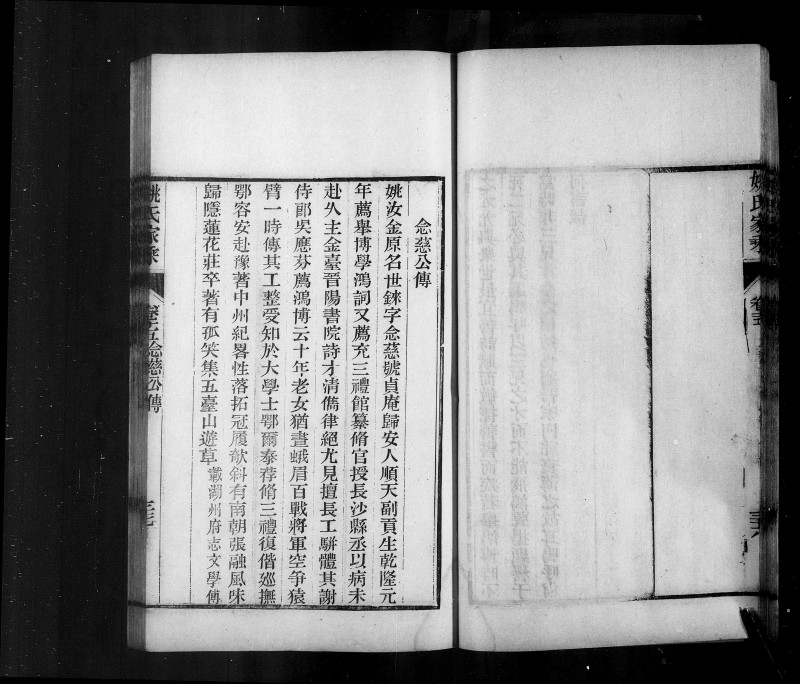 姚氏家乘
卷十五
念慈公傳
姚汝金原名世錸字念慈號貞庵歸安人順天副貢生乾隆元
年薦舉博學鴻詞又薦充三禮館纂脩官授長沙縣丞以病未
赴久主金臺晉陽書院詩才清儁律絕尤見擅長工駢體其謝
侍郎吳應棻薦鴻博云十年老女猶畫蛾眉百戰將軍空爭猿
臂一時傳其工整受知於大學士鄂爾泰荐脩三禮復偕巡撫
鄂容安赴豫著中州紀畧性落拓冠履欹斜有南朝張融風味
歸隱蓮花莊卒著有孤笑集五臺山遊草載湖州府志文學傳
姚氏家乘
卷十五念慈公傳